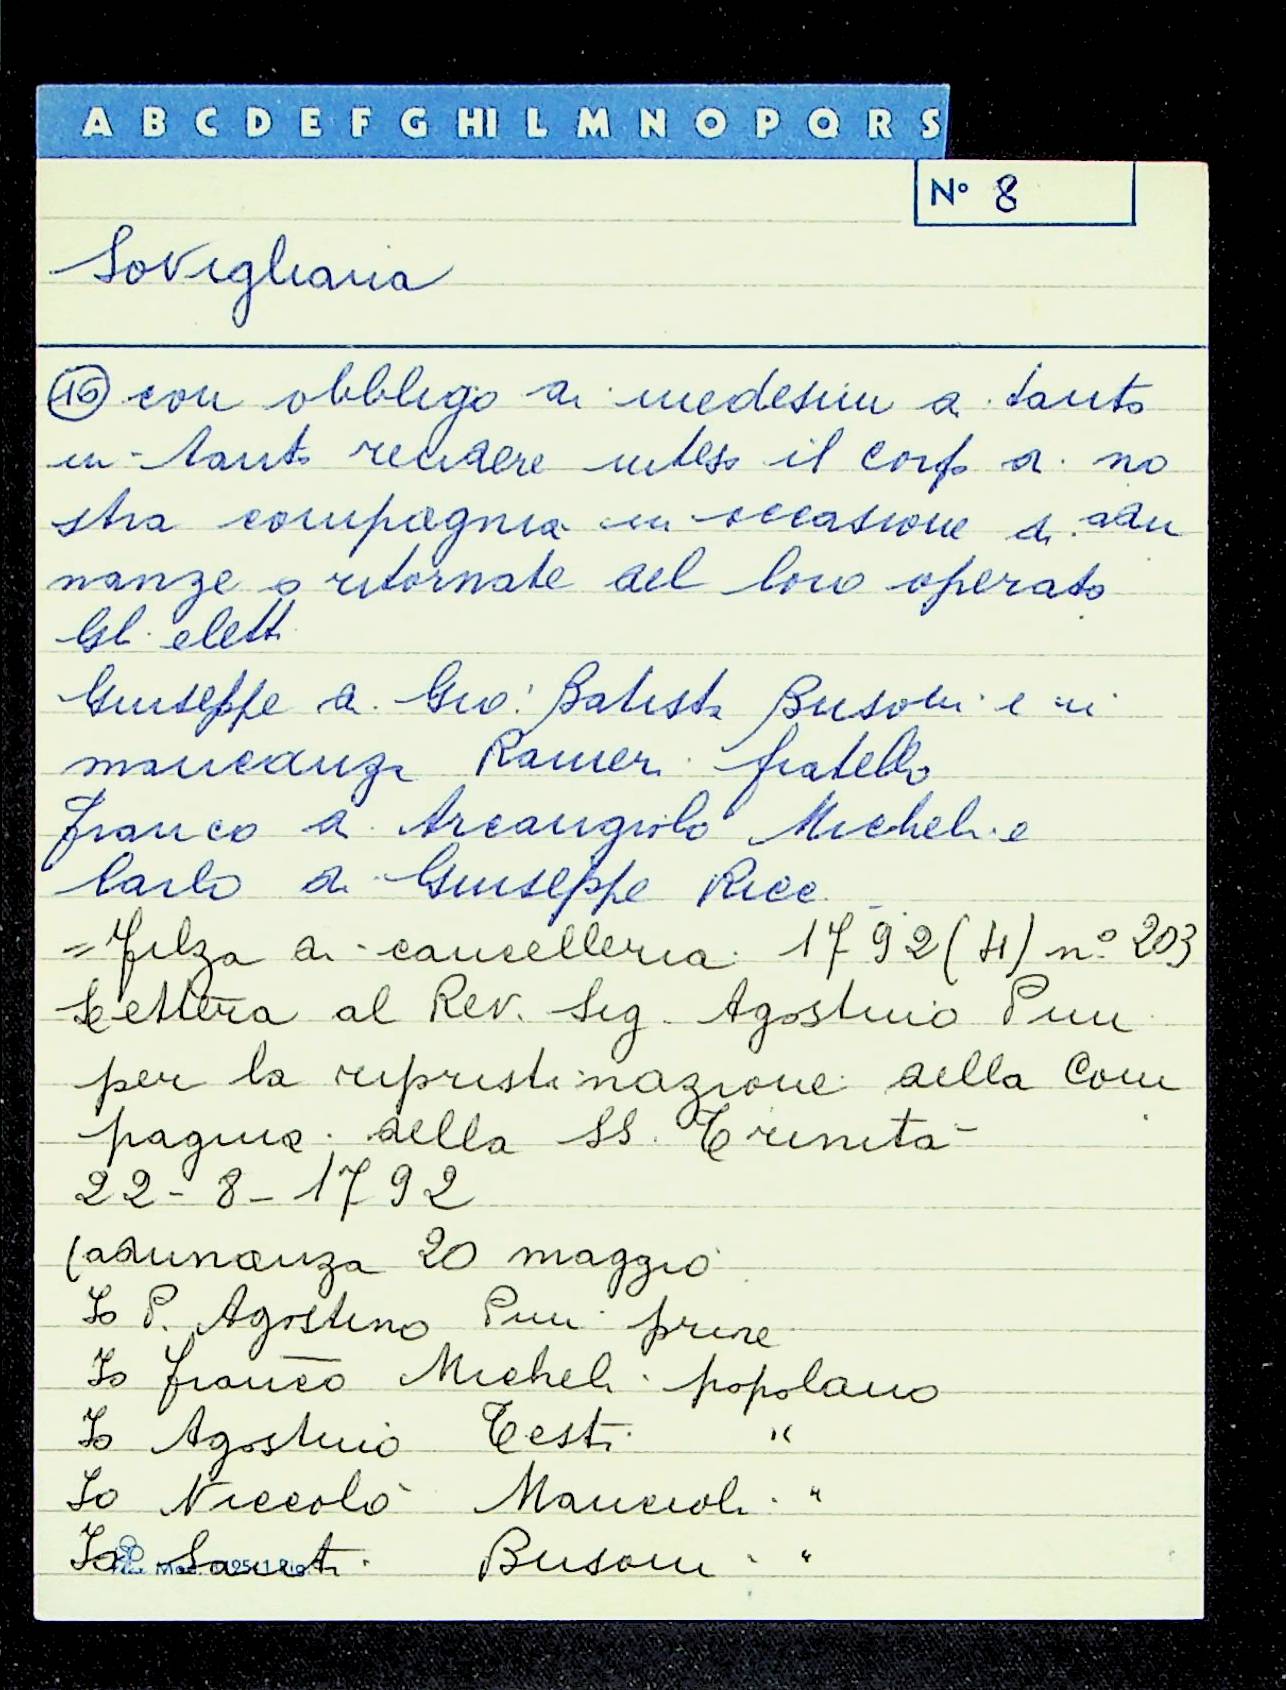 A B C D E F G HI L M N O P Q R S
N° 8
Sovigliana
(16) con obbligo ai medesimi di tanto
in-tanto rendere inteso il corpo di no
stra compagnia in occasione di adu
nanze o ritornate del loro operato
Gli eletti
Giuseppe di Gio: Batista Busoni e in
mancanza Ranieri fratello
Franco di Arcangiolo Micheli e
Carlo di Giuseppe Ricc
= Filza di cancelleria 1792 (4) n° 203
Lettera al Rev. Sig. Agostino Pini
per la ripristinazione della Com
pagnia della SS. Trinità
22-8-1792
(adunanza 20 maggio
Io P. Agostino Pini priore
Io Franco Micheli popolano
Io Agostino Testi "
Io Niccolò Mancioli "
Io Santi Busoni "